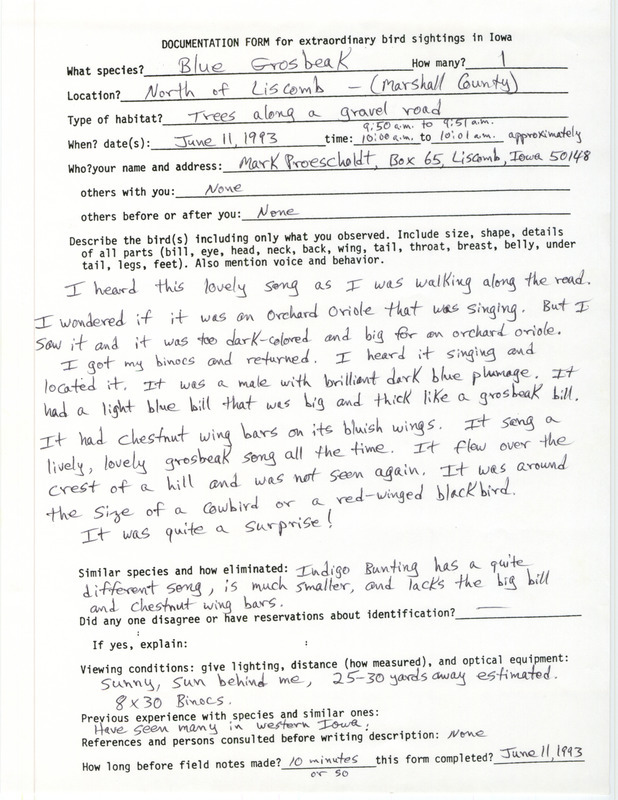 DOCUMENTATION FORM for extraordinary bird sightings in Iowa
What species? Blue Grosbeak How many? 1
Location? North of Liscomb - (Marshall County)
Type of habitat? Trees along a gravel road
9:50 a.m. to 9:51 a.m.
When? date(s): June 11, 1993 time: 10:00 a.m. to 10:01 a.m. approximately
Who?your name and address: Mark Proescholdt, Box 65, Liscomb, Iowa 50148
others with you: None
others before or after you: None
Describe the bird(s) including only what you observed. Include size, shape, details
of all parts (bill, eye, head, neck, back, wing, tail, throat, breast, belly, under
tail, legs, feet). Also mention voice and behavior.
I heard this lovely song as I was walking along the road.
I wondered if it was an Orchard Oriole that was singing. But I
saw it and it was too dark-colored and big for an orchard oriole.
I got my binocs and returned. I heard it singing and
located it. It was a male with brilliant dark blue plumage. It
had a light blue bill that was big and thick like a grosbeak bill.
It had chestnut wing bars on its bluish wings. It sang a
lively, lovely grosbeak song all the time. It flew over the
crest of a hill and was not seen again. It was around
the size of a cowbird or a red-winged blackbird.
It was quite a surprise!
Similar species and how eliminated: Indigo Bunting has a quite
different song, is much smaller, and lacks the big bill
and chestnut wing bars.
Did any one disagree or have reservations about identification? —
If yes, explain:
Viewing conditions: give lighting, distance (how measured), and optical equipment:
Sunny, sun behind me, 25-30 yards away estimated.
8 x 30 Binocs.
Previous experience with species and similar ones:
Have seen many in western Iowa.
References and persons consulted before writing description: None
How long before field notes made? 10 minutes this form completed? June 11, 1993
or so